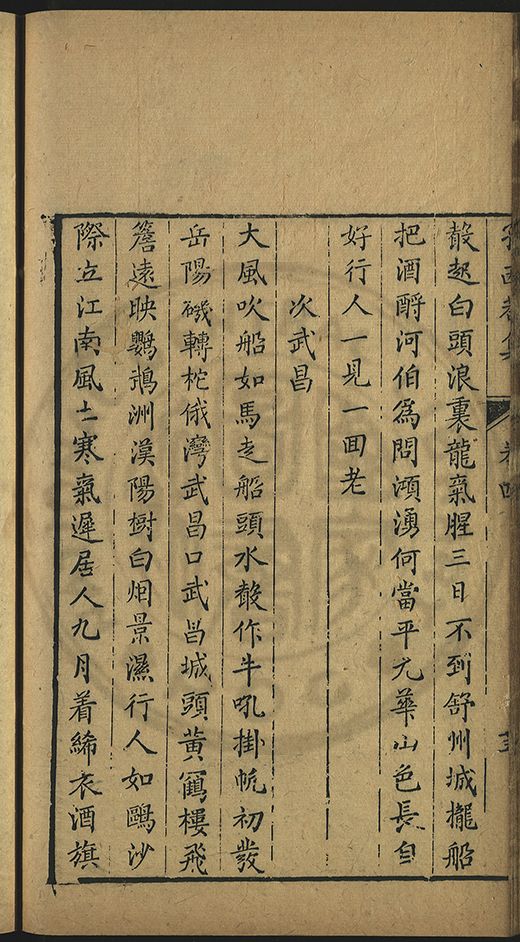 卷四
殸起白頭浪裏龍氣腥三日不到舒州城擺船
把酒酹河伯為問澒湧何當平九華山色長自
好行人一見一回老
次武昌
大風吹船如馬走船頭水殸作牛吼掛帆初發
岳陽磯轉柁俄灣武昌口武昌城頭黃鶴樓飛
簷遠映鸚鵡洲漢陽樹白烟景濕行人如鷗沙
際立江南風土寒氣遲居人九月着絺衣酒旗